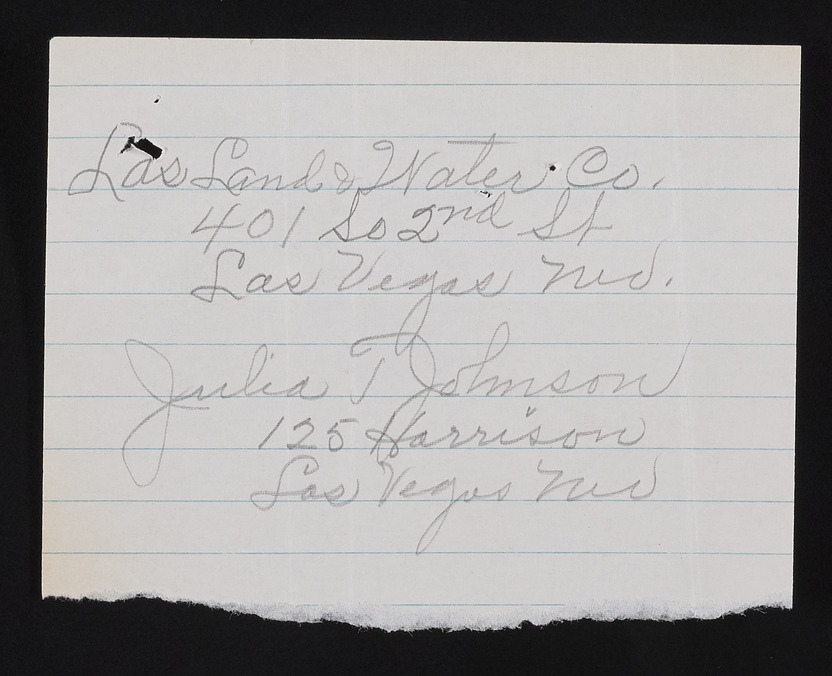 Las Land & Water Co.
401 So 2nd St
Las Vegas Nev.
Julia T Johnson
125 Harrison
Las Vegas Nev